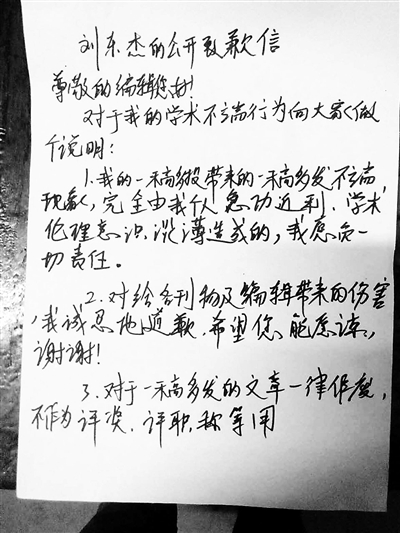 刘东杰的公开致歉信
尊敬的编辑老师！
对于我的学术不端行为向大家做
个说明：
1.我的一稿多投带来的一稿多发不端
现象，完全由我个人急功近利、学术
伦理意识淡薄造成的，我愿负一
切责任。
2.对给各刊物及编辑带来的伤害
，我诚恳地道歉，希望您能原谅，
谢谢！
3.对于一稿多发的文章一律作废，
不作为评奖、评职称等用